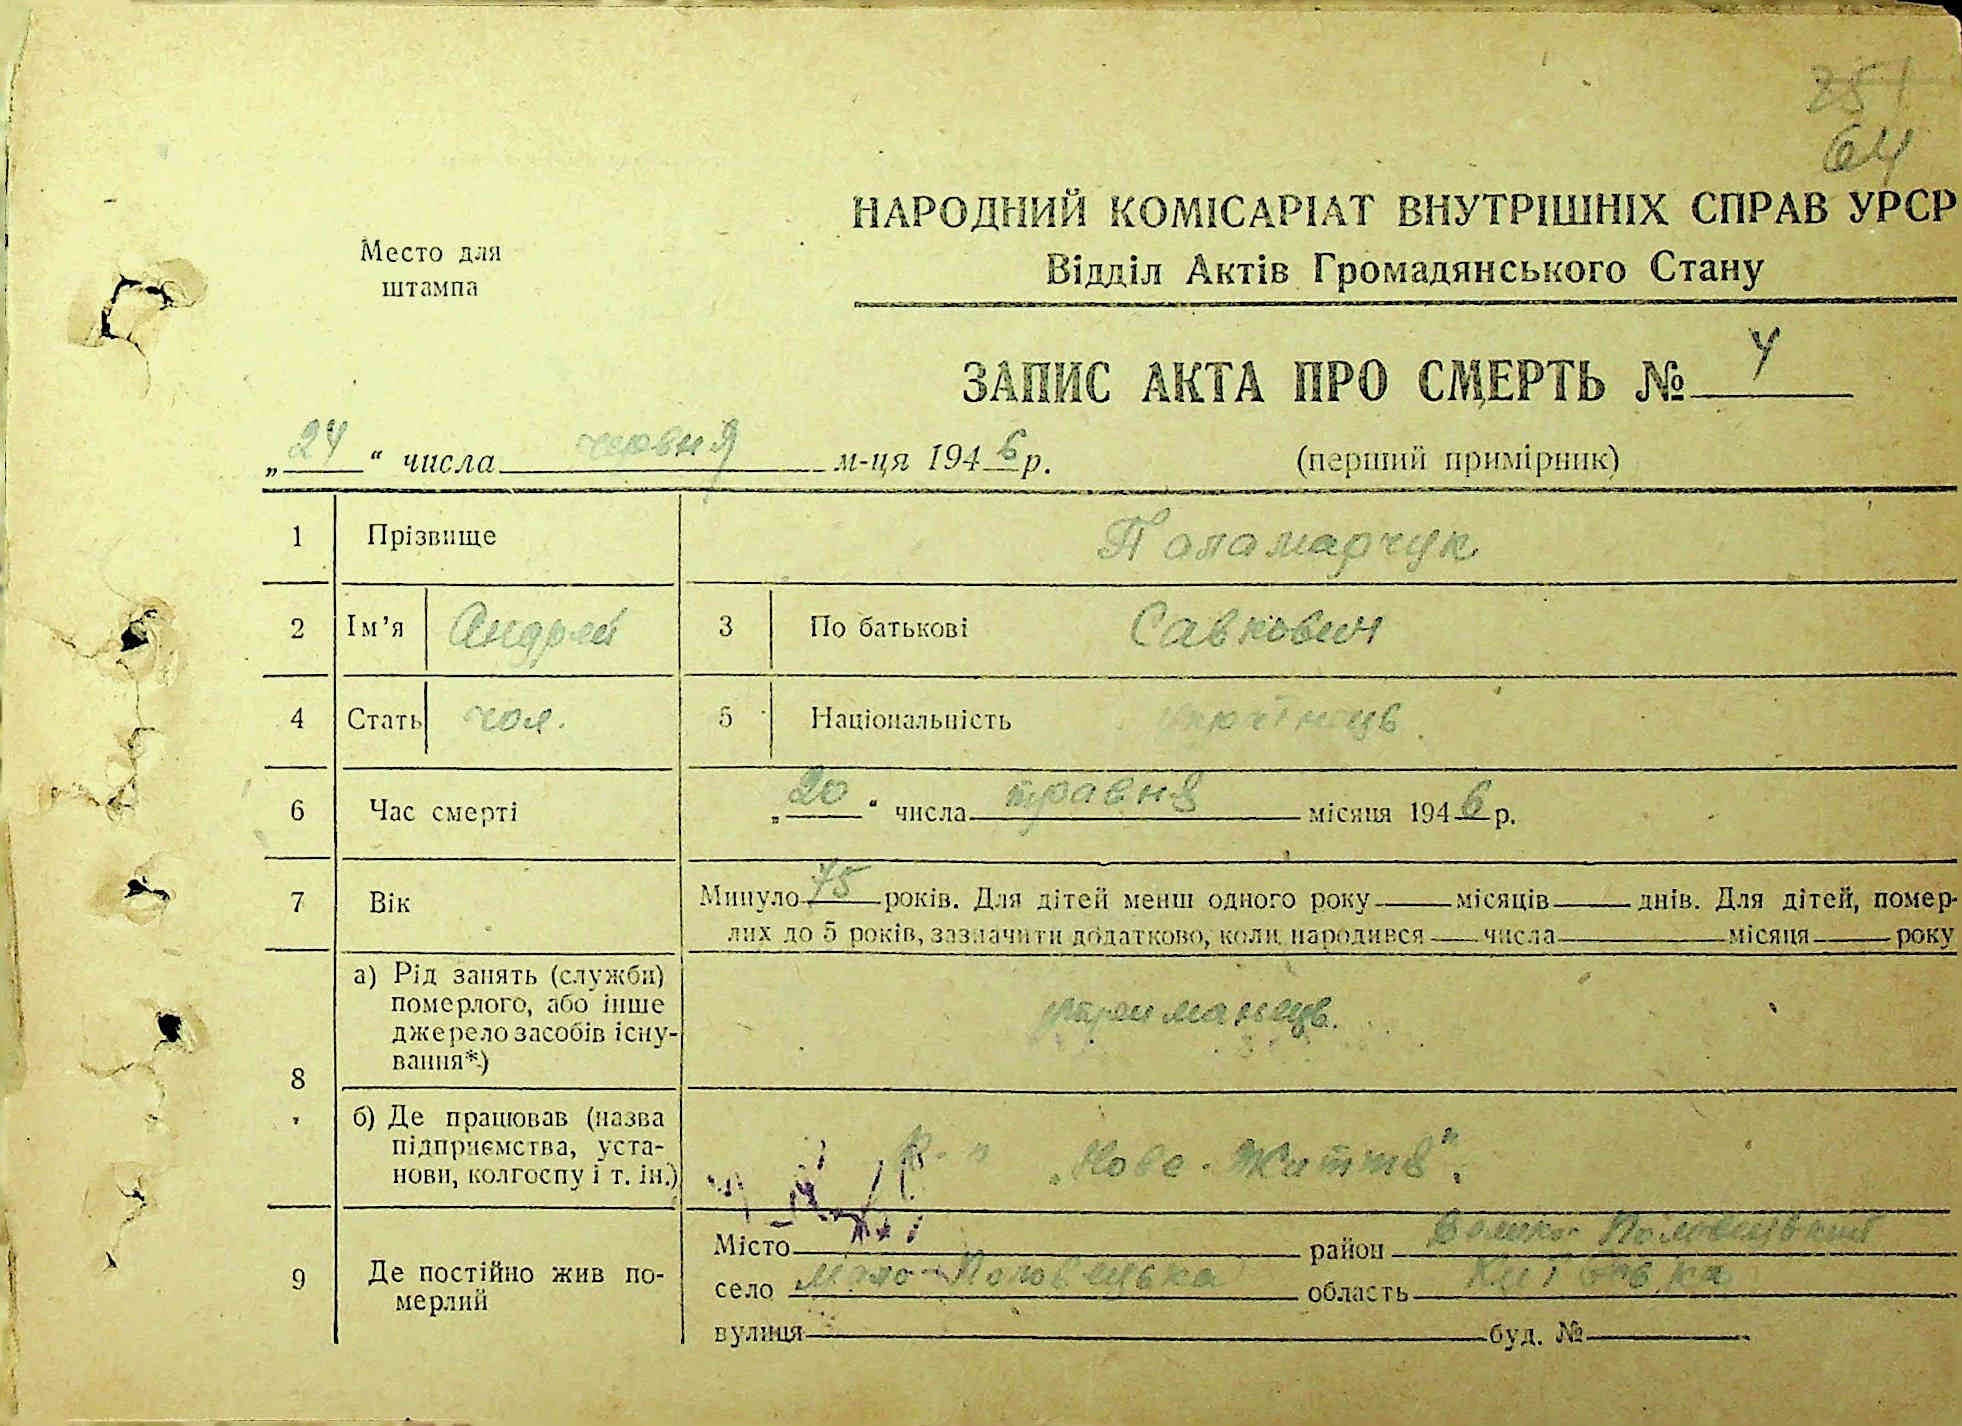 251
64
НАРОДНИЙ КОМІСАРІАТ ВНУТРІШНІХ СПРАВ УРСР
Відділ Актів Громадянського Стану
Место для
штампа
ЗАПИС АКТА ПРО СМЕРТЬ № 4
„24“ числа червня м-ця 1946 р.
(перший примірник)
1 Прізвище Паламарчук
2 Ім’я Андрей 3 По батькові Савкович
4 Стать чол. 5 Національність українець
6 Час смерті „20“ числа травня місяця 1946 р.
7 Вік Минуло 75 років. Для дітей менш одного року місяців днів. Для дітей, помер-
лих до 5 років, зазначити додатково, коли народився числа місяця року
8 а) Рід занять (служби)
померлого, або інше
джерело засобів існу-
вання*)
утриманець.
б) Де працював (назва
підприємства, уста-
нови, колгоспу і т. ін.)
„Нове-Життя“.
9 Де постійно жив по-
мерлий
Місто район Велико-Половецький
село Мало-Половецька область Київська
вулиця буд. №